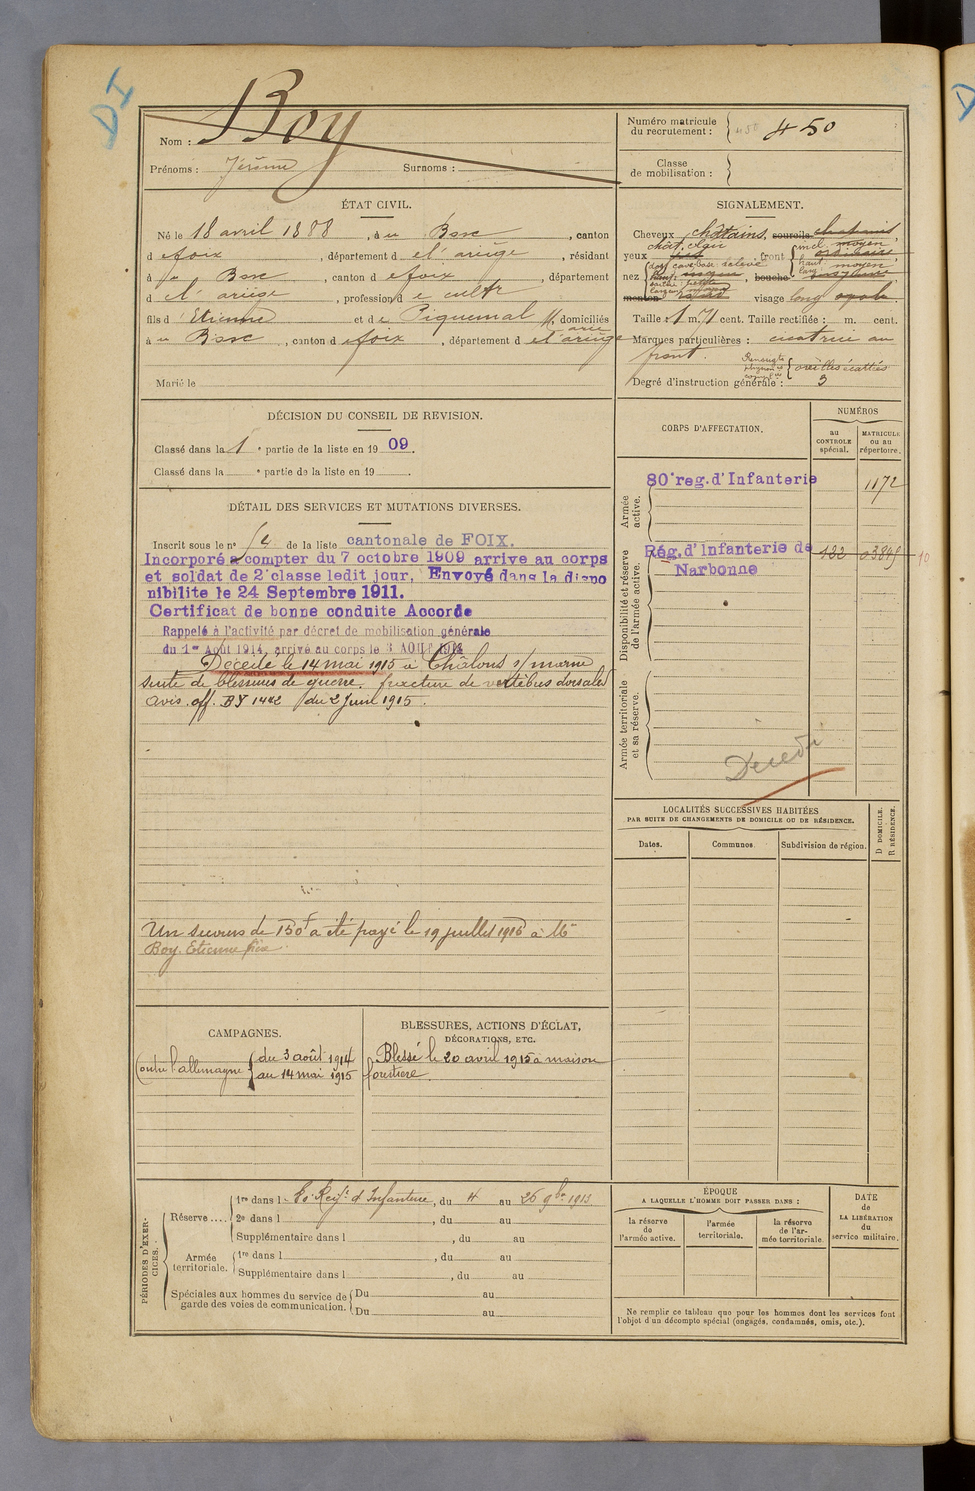 DI
Nom : Boy
Prénoms : Jérôme Surnoms :
Numéro matricule du recrutement : 450 450
Classe de mobilisation :
ÉTAT CIVIL.
Né le 18 avril 1888, à u Bosc, canton
d e foix, département d e l'ariège, résidant
à u Bosc, canton d e foix, département
d e l'ariège, profession d e cultr
fils d' Etienne et d e Piquemal, domiciliés
à u Bosc, canton d e foix, département d e l'ariège
Marié le
SIGNALEMENT.
Cheveux châtains, sourcils châtains,
yeux chât. clair front incl. moyen
haut. moyen
larg. moyen
nez dos cave base relevé, bouche moyenne
saillie petite
largeur moyen
menton visage long ovale.
Taille : 1 m. 71 cent. Taille rectifiée : m. cent.
Marques particulières : cicatrice au
front. oreilles écartées
Degré d'instruction générale : 3
DÉCISION DU CONSEIL DE REVISION.
Classé dans la 1 e partie de la liste en 1909.
Classé dans la e partie de la liste en 19 .
DÉTAIL DES SERVICES ET MUTATIONS DIVERSES.
Inscrit sous le n° de la liste cantonale de FOIX.
Incorporé à compter du 7 octobre 1909 arrive au corps
et soldat de 2e classe ledit jour, Envoyé dans la dispo
nibilite le 24 Septembre 1911.
Certificat de bonne conduite Accordé
Rappelé à l'activité par décret de mobilisation générale
du 1er Août 1914, arrivé au corps le 3 AOUT 1914
Décédé le 14 mai 1915 à Châlons s/ marne
suite de blessures de guerre. fracture de vertèbres dorsales
avis. off. BY 1442 du 2 Juin 1915.
Un secours de 150f a été payé le 19 juillet 1916 à Mr
Boy Etienne père.
CORPS D'AFFECTATION,
NUMÉROS
au CONTROLE spécial.
MATRICULE ou au répertoire.
Armée active.
80e reg. d'Infanterie 1172
Disponibilité et réserve de l'armée active.
Rég. d'Infanterie de 122 03849 10
Narbonne
Armée territoriale et sa réserve.
Décédé
LOCALITÉS SUCCESSIVES HABITÉES
PAR SUITE DE CHANGEMENTS DE DOMICILE OU DE RÉSIDENCE.
Dates. Communes. Subdivision de région. D DOMICILE. R RÉSIDENCE.
CAMPAGNES.
Contre l'allemagne du 3 août 1914
au 14 mai 1915
BLESSURES, ACTIONS D'ÉCLAT,
DÉCORATIONS, ETC.
Blessé le 20 avril 1915 à maison
forestière.
PÉRIODES D'EXERCICES.
Réserve .... 1re dans l e 80 Régt d'Infanterie, du 4 au 26 9bre 1913
2e dans l , du au
Supplémentaire dans l , du au
Armée territoriale. 1re dans l , du au
Supplémentaire dans l , du au
Spéciales aux hommes du service de garde des voies de communication. Du au
Du au
ÉPOQUE
A LAQUELLE L'HOMME DOIT PASSER DANS :
la réserve de l'armée active.
l'armée territoriale.
la réserve de l'armée territoriale.
DATE de LA LIBÉRATION du service militaire.
Ne remplir ce tableau que pour les hommes dont les services font
l'objet d'un décompte spécial (engagés, condamnés, omis, etc.).